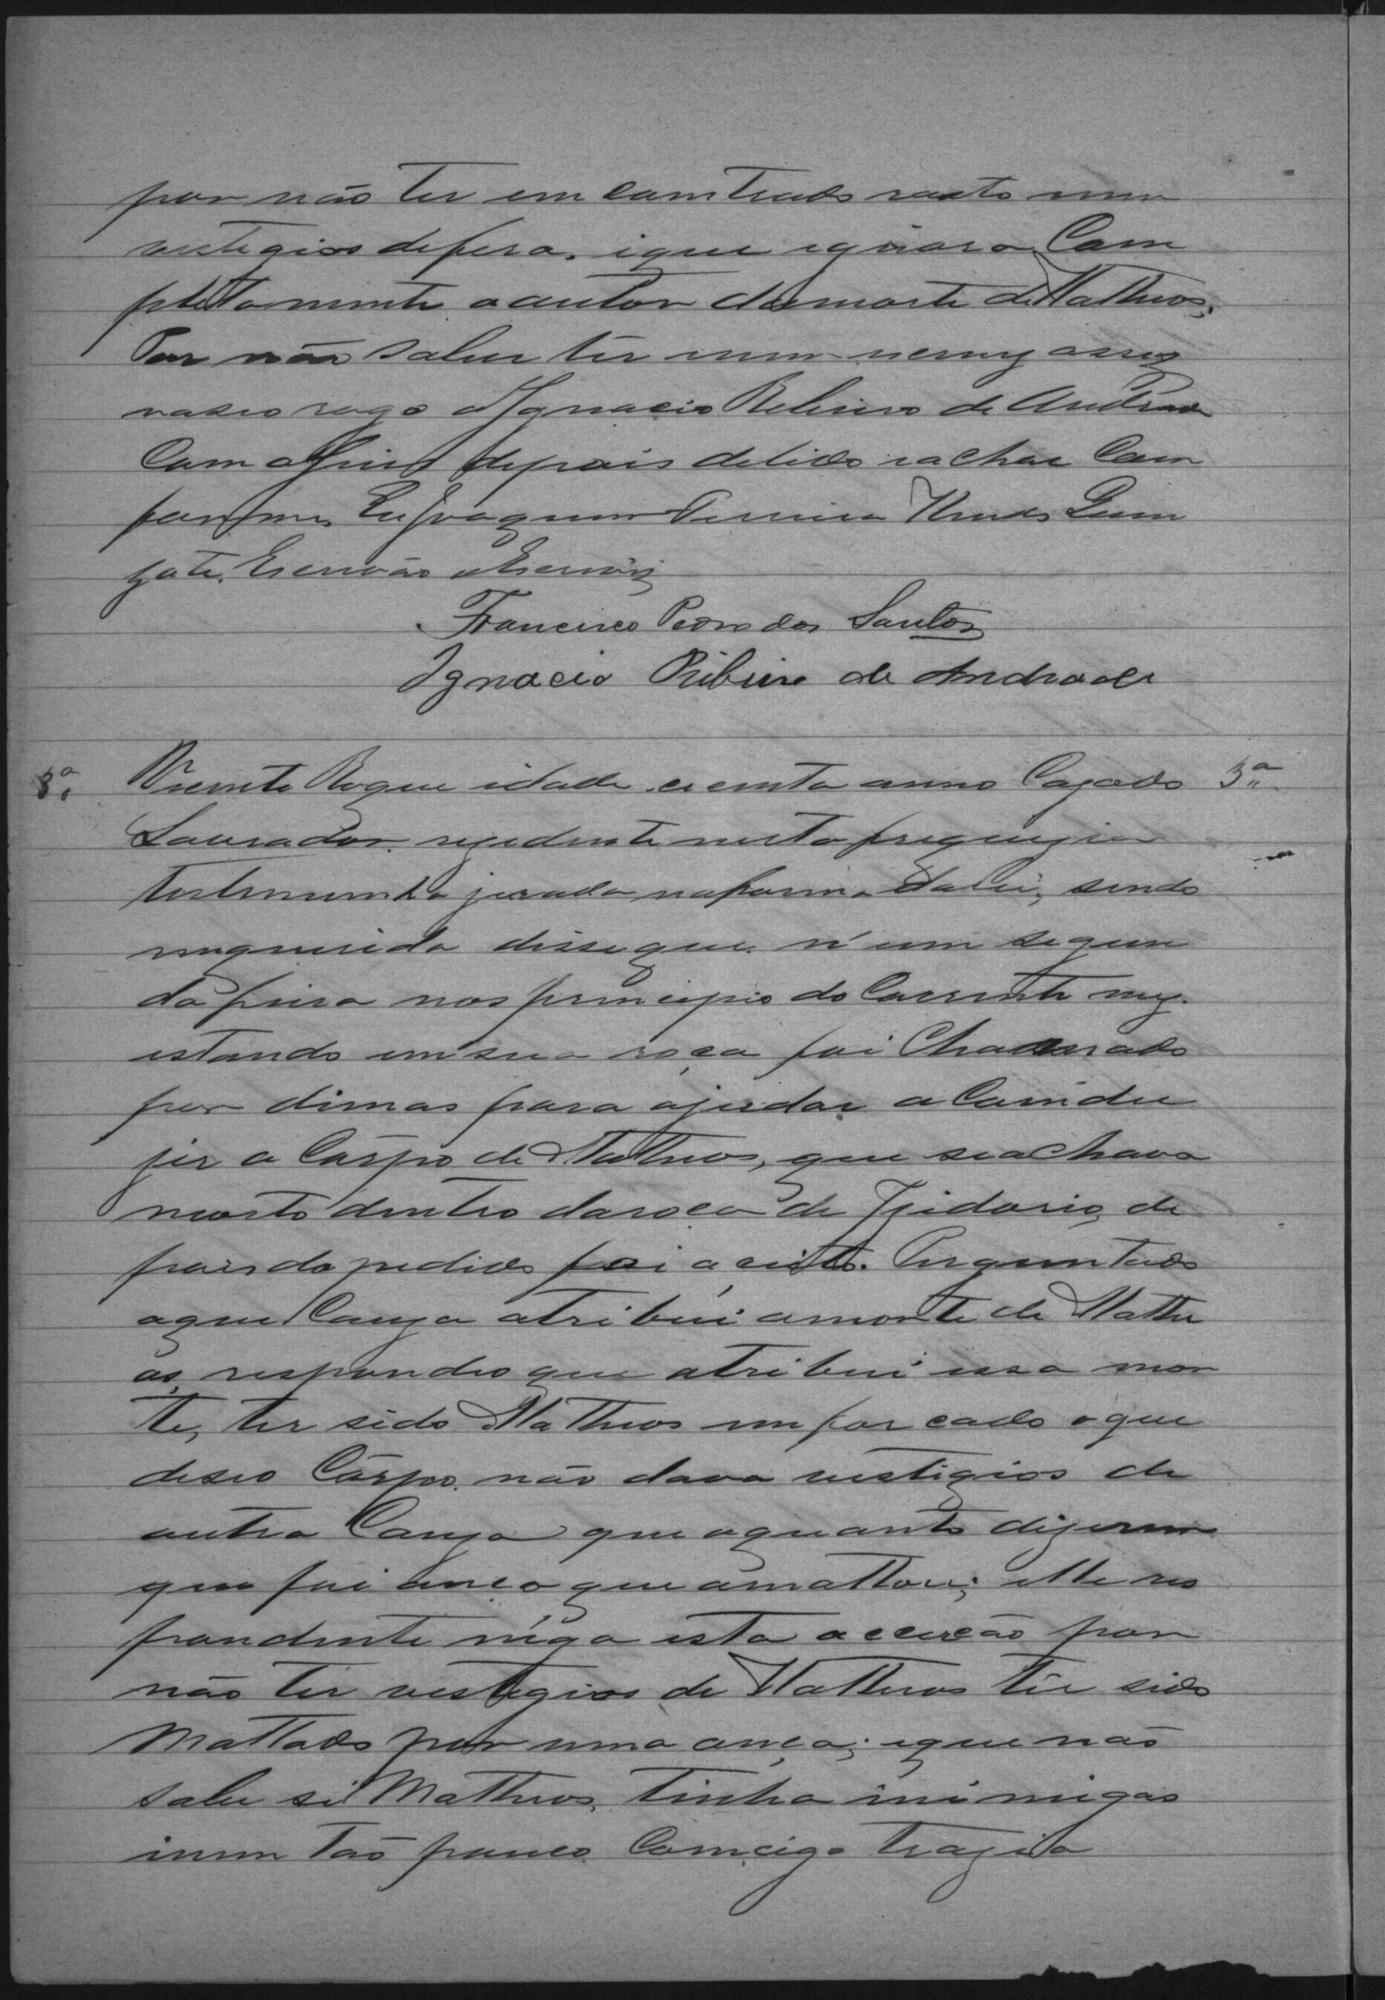 por não ter em comtrado rasto nem
vestegios defera. ique iguinora Com
pletamente o autor damorte de Matheos.
Por não saber ler nem escrever assig
naseo rogo Ignacio Ribeiro de Andrade
Com o Juis depois delido i achar Com
forme. Eu Joaquim Pereira
Escrivão o Escrevi
Francisco Pedro dos Santos
Ignacio Ribeiro de Andrade
3ª Vicente Roque idade cecenta anno Cazado 3ª
Laurador rezidente nesta freguezia
testemunha jurada naforma dalei, sendo
enquerida disseque n'um segun
da feira nos principio do Corrente mez.
estando em sua roça foi Chamado
por dimas para ajudar a Comdu
jir o Corpo de Matheos, que seachava
morto dentro daroça de Izidorio, de
pois do pedido foi aceito. Perguntado
aque Cauza atribui amorte de Mathe
os, respondeo que atribui essa mor
te, ter sido Matheos emforcado oque
deseo Corpo não dava vestigios de
outra Cauza que aquanto dizerem
que foi onça que amattou; elle res
pondente néga esta accução por
não ter vestegios de Matheos têr sido
Mattado por uma onça; eque não
sabe si Matheos, tinha inimigos
inem tão pouco Comcigo trazia